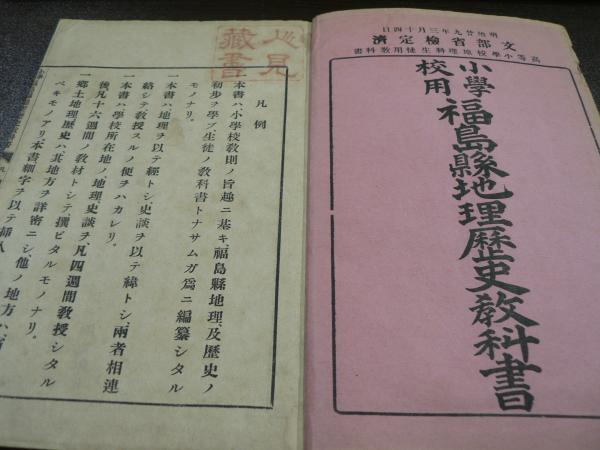 明治廿九年三月十四日
文部省檢定濟
高等小學校地理科生徒用教科書
小學
校用
福島縣地理歷史教科書
凡例
本書ハ、小學校教則ノ旨趣ニ基キ、福島縣地理、及歷史ノ
初步ヲ學ブ、生徒ノ教科書トナサムガ爲ニ編纂シタル
モノナリ。
一本書ハ、地理ヲ以テ經トシ、史談ヲ以テ緯トシ、兩者相連
絡シテ教授スルノ便ヲハカレリ。
一本書ハ學校所在地ノ、地理、史談ヲ、凡四週間教授シタル
後、凡十六週間ノ教材トシテ撰ビタルモノナリ。
一鄉土地理歷史ハ、其地方ヲ詳密ニシ、他ノ地方ハ
ベキモノアリ、本書細字ヲ以テ挿入
見
藏書